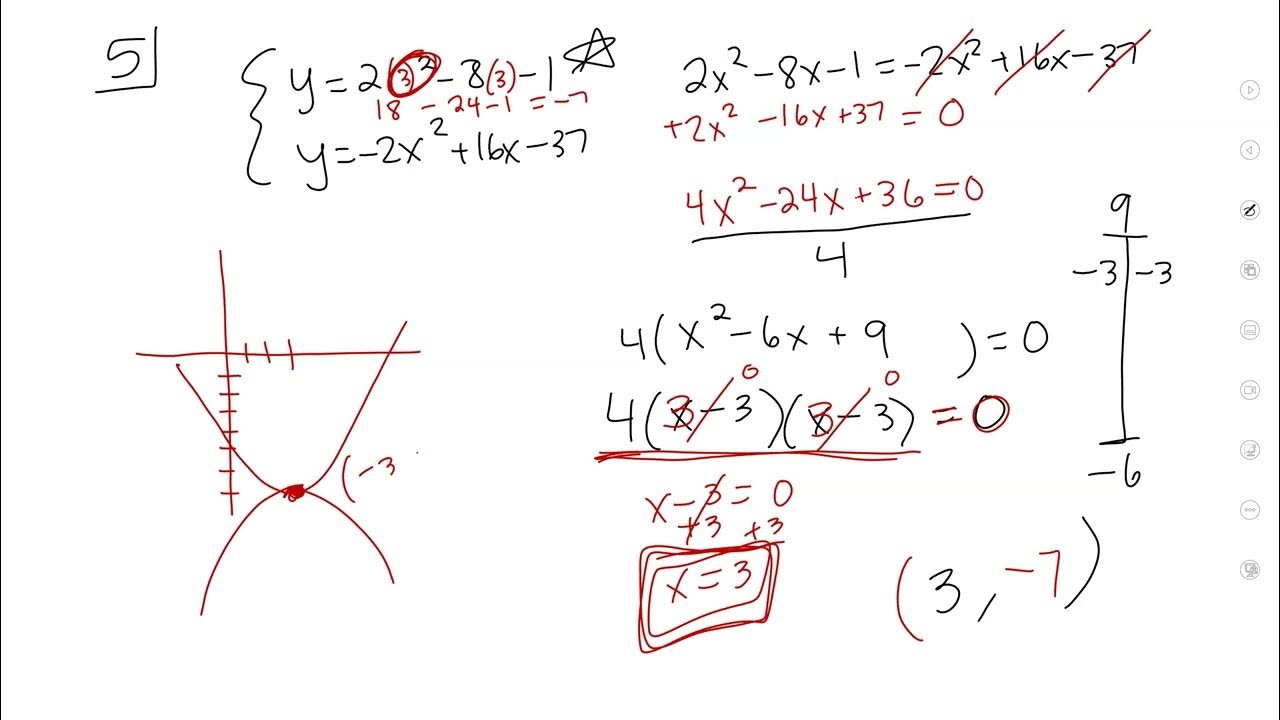 5
y = 2(3)² - 8(3) - 1
18 - 24 - 1 = -7
y = -2x² + 16x - 37
2x² - 8x - 1 = -2x² + 16x - 37
+2x² - 16x + 37 = 0
4x² - 24x + 36 = 0
4
4(x² - 6x + 9 ) = 0
0 0
4(x - 3)(x - 3) = 0
x - 3 = 0
+3 +3
x = 3
9
-3 -3
-6
(-3
(3, -7)